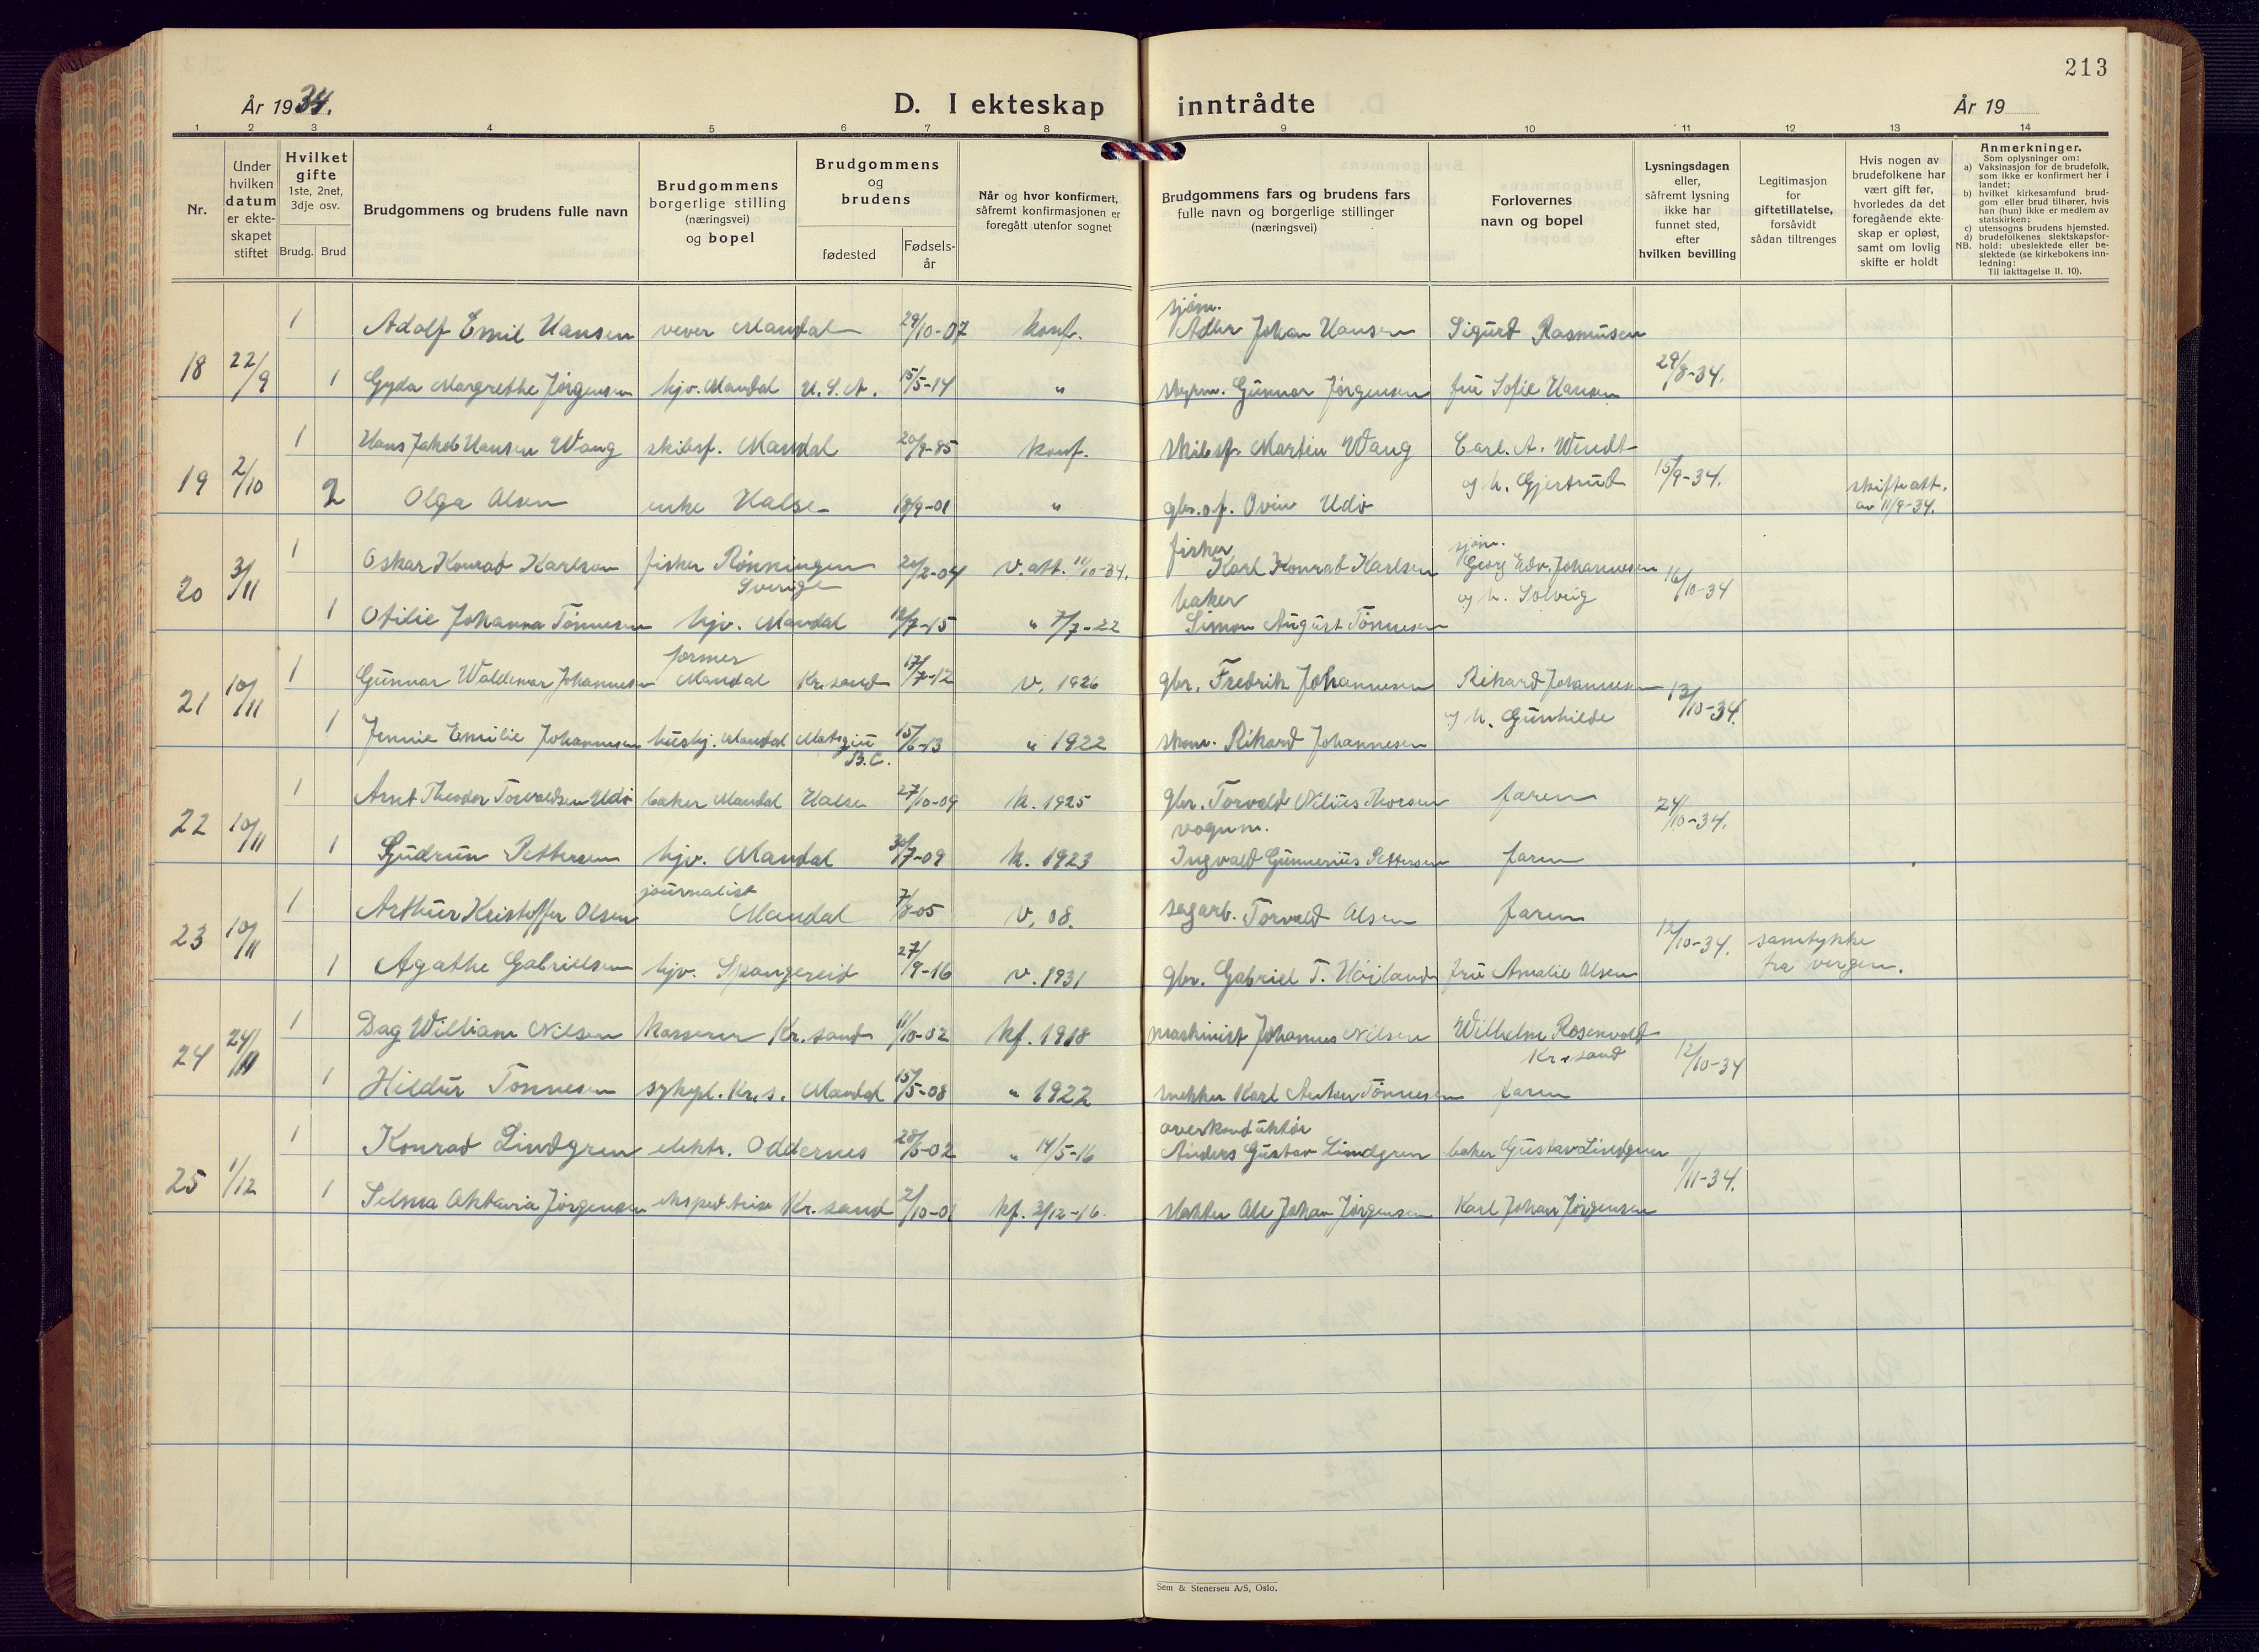 213
År 1934.
D. I ekteskap inntrådte
År 19
1 2 3 4 5 6 7 8 9 10 11 12 13 14
Nr.
Under hvilken datum er ekte-skapet stiftet
Hvilket gifte 1ste, 2net, 3dje osv.
Brudg. Brud
Brudgommens og brudens fulle navn
Brudgommens borgerlige stilling (næringsvei) og bopel
Brudgommens og brudens
fødested
Fødsels-år
Når og hvor konfirmert, såfremt konfirmasjonen er foregått utenfor sognet
Brudgommens fars og brudens fars fulle navn og borgerlige stillinger (næringsvei)
Forlovernes navn og bopel
Lysningsdagen eller, såfremt lysning ikke har funnet sted, efter hvilken bevilling
Legitimasjon for giftetillatelse, forsåvidt sådan tiltrenges
Hvis nogen av brudefolkene har vært gift før, hvorledes da det foregående ekte-skap er opløst, samt om lovlig skifte er holdt
Anmerkninger.
Som oplysninger om:
a) Vaksinasjon for de brudefolk, som ikke er konfirmert her i landet;
b) hvilket kirkesamfund brud-gom eller brud tilhører, hvis han (hun) ikke er medlem av statskirken;
c) utensogns brudens hjemsted.
d) brudefolkenes slektskapsfor-hold: ubeslektede eller be-slektede (se kirkebokens inn-ledning:
NB.
Til iakttagelse II. 10).
sjöm.
1 Adolf Emil Hansen vever Mandal 29/10-07 konf. Johan Hansen Sigurd Rasmusen
18 22/9 29/8-34.
1 Gyda Margrethe Jørgensen hjv. Mandal U.S.A. 15/5-14 " styrm. Gunnar Jørgensen fru Sofie Hansen
1 Hans Jakob Hansen Wang skibsf. Mandal 20/9-85 konf. skibsf. Martin Wang Carl. A. Wendt
19 2/10 og h. Gjertrud 15/9-34. skifteatt.
2 Olga Olsen enke Halse 18/9-01 " gbr. Udö av 11/9-34.
fisker sjöm.
1 Oskar Konrad Karlson fisker Rönningen 20/2-04 V. att. 11/10-34. Karl Konrad Karlsen Georg Edv. Johannesen
Sverige
20 3/11 baker og h. Solveig 16/10-34
1 Otilie Johanna Tönnesen hjv. Mandal 12/7-15 " 7/7-22 Simon August Tönnesen
former
1 Gunnar Waldemar Johannesen Mandal Kr.sand 17/7-12 v. 1926 gbr. Fredrik Johannesen Rikard Johannesen
21 10/11 og h. Gunhilde 13/10-34.
1 Jennie Emilie Johannesen hushj. Mandal 15/6-13 " 1922 skom. Rikard Johannesen
B.C.
1 Arnt Theodor Torvaldsen Udö baker Mandal Halse 27/10-09 k. 1925 gbr. Torvald Nilius Thorsen faren
22 10/11 vognm. 24/10-34.
1 Gudrun Pettersen hjv. Mandal 30/7-09 k. 1923 Ingvald Gunnerius Pettersen faren
journalist
1 Arthur Kristoffer Olsen Mandal 7/8-05 v. 08. sagarb. Torvald Olsen faren
23 10/11 12/10-34. samtykke
1 Agathe Gabrielsen hjv. Spangereid 27/9-16 v. 1931 gbr. Gabriel T. Höiland fru Amalie Olsen fra vergen.
1 Dag William Nilsen kasserer Kr.sand 11/10-02 kf. 1918 maskinist Johannes Nilsen Wilhelm Rosenvold
24 24/11 Kr.sand 12/10-34
1 Hildur Tönnesen sykepl. Kr.s. Mandal 15/5-08 " 1922 snekker Karl Anton Tönnesen faren
overkonduktör
1 Konrad Lindgren elektr. Oddernes 28/5-02 " 14/5-16 Anders Gustav Lindgren baker Gustav Lindgren
25 1/12 1/11-34.
1 Selma Oktavia Jørgensen ekspeditrise Kr.sand 2/10-01 kf. 3/12-16. slakter Ole Johan Jørgensen Karl Johan Jørgensen
Sem & Stenersen A/S, Oslo.